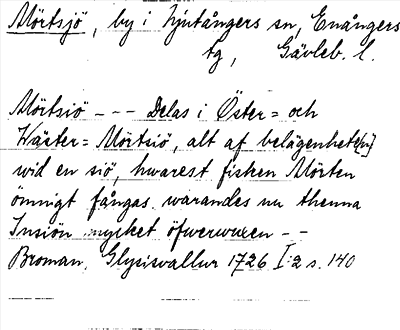 Mörtsjö, by i Njutångers sn, Enångers
tg, Gävleb. l.
Mörtsiö - - - Delas i Öster= och
Wäster= Mörtsiö, alt af belägenhete[n]
wid en siö, hwarest fisken Mörten
ömnigt fångas warandes nu thenna
Insiön mycket öfwerwuxen - -
Broman, Glysisvallur 1726 I:2 s. 140